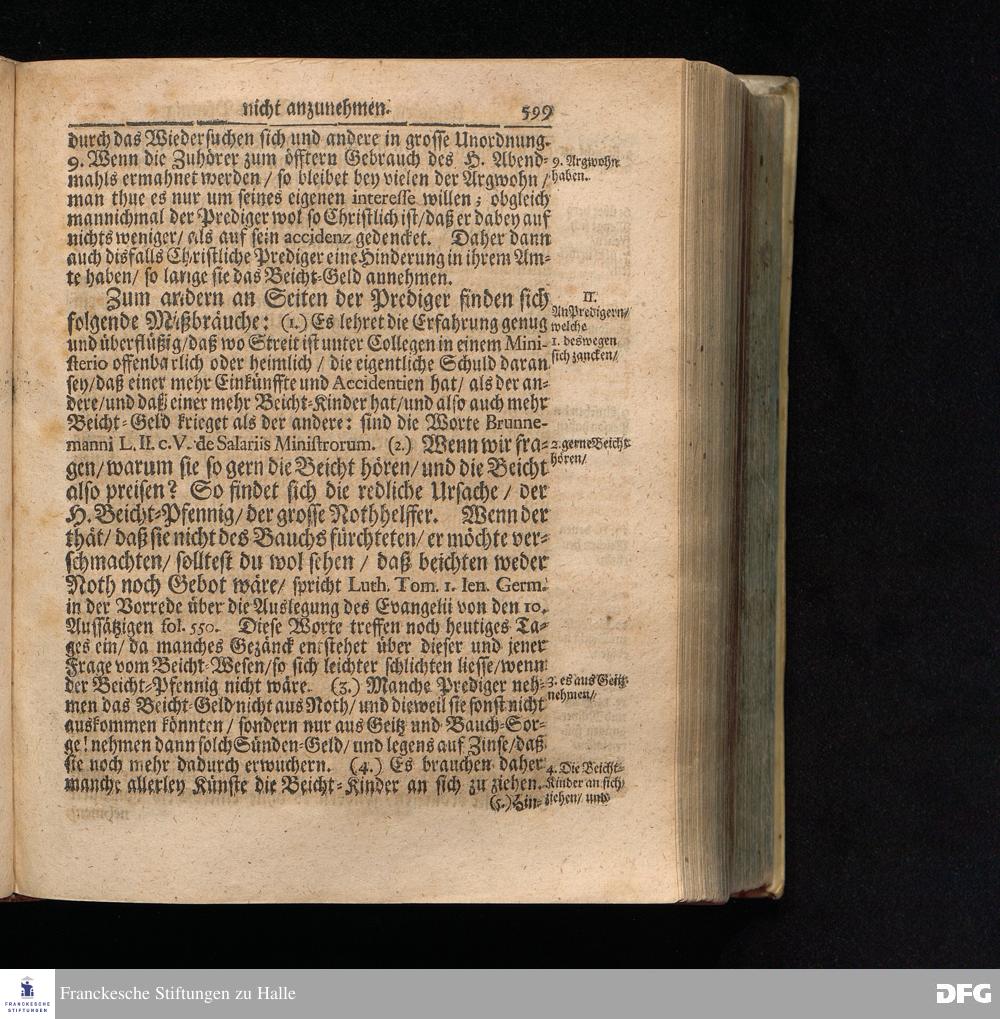 nicht anzunehmen. 599
durch das Wiedersuchen sich und andere in grosse Unordnung.
9. Wenn die Zuhörer zum öfftern Gebrauch des H. Abend-
mahls ermahnet werden/ so bleibet bey vielen der Argwohn/
man thue es nur um seines eigenen interesse willen; obgleich
mannichmal der Prediger wol so Christlich ist/daß er dabey auf
nichts weniger/ als auf sein accidenz gedencket. Daher dann
auch disfalls Christliche Prediger eine Hinderung in ihrem Am-
te haben/ so lange sie das Beicht-Geld annehmen.
9. Argwohn
haben.
Zum andern an Seiten der Prediger finden sich
folgende Mißbräuche: (1.) Es lehret die Erfahrung genug
und überflüßig/daß wo Streit ist unter Collegen in einem Mini-
sterio offenbarlich oder heimlich/ die eigentliche Schuld daran
sey/daß einer mehr Einkünffte und Accidentien hat/ als der an-
dere/und daß einer mehr Beicht-Kinder hat/und also auch mehr
Beicht-Geld krieget als der andere: sind die Worte Brunne-
manni L. II. c. V. de Salariis Ministrorum. (2.) Wenn wir fra-
gen/warum sie so gern die Beicht hören/ und die Beicht
also preisen? So findet sich die redliche Ursache/ der
H. Beicht-Pfennig/ der grosse Nothhelffer. Wenn der
thät/ daß sie nicht des Bauchs fürchteten/ er möchte ver-
schmachten/ solltest du wol sehen/ daß beichten weder
Noth noch Gebot wäre/ spricht Luth. Tom. 1. Ien. Germ.
in der Vorrede über die Auslegung des Evangelii von den 10.
Aussätzigen fol. 550. Diese Worte treffen noch heutiges Ta-
ges ein/ da manches Gezänck entstehet über dieser und jener
Frage vom Beicht-Wesen/so sich leichter schlichten liesse/wenn
der Beicht-Pfennig nicht wäre. (3.) Manche Prediger neh-
men das Beicht-Geld nicht aus Noth/ und dieweil sie sonst nicht
auskommen könnten/ sondern nur aus Geitz und Bauch-Sor-
ge! nehmen dann solch Sünden-Geld/ und legens auf Zinse/daß
sie noch mehr dadurch erwuchern. (4.) Es brauchen daher
manche allerley Künste die Beicht-Kinder an sich zu ziehen.
(5.) Hin-
II.
An Predigern/
welche
1. deswegen
sich zancken/
2. gerne Beicht
hören/
3. es aus Geitz
nehmen/
4. Die Beicht-
Kinder an sich
ziehen/ und
FRANCKESCHE
STIFTUNGEN
Franckesche Stiftungen zu Halle
DFG